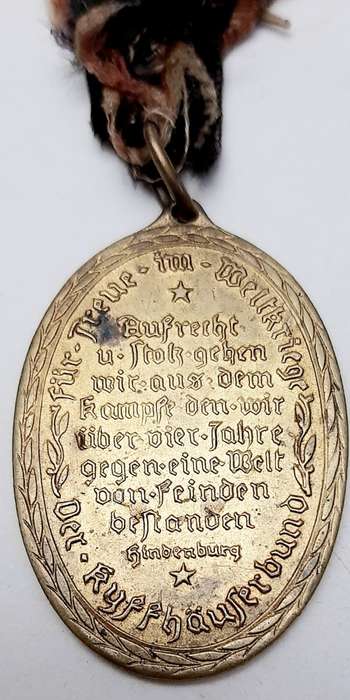 Für · Treue · im · Weltkriege
Aufrecht
u · stolz · gehen
wir · aus · dem
Kampfe · den · wir
über · vier · Jahre
gegen · eine · Welt
von · Feinden
bestanden
Hindenburg
Der · Kyffhäuserbund